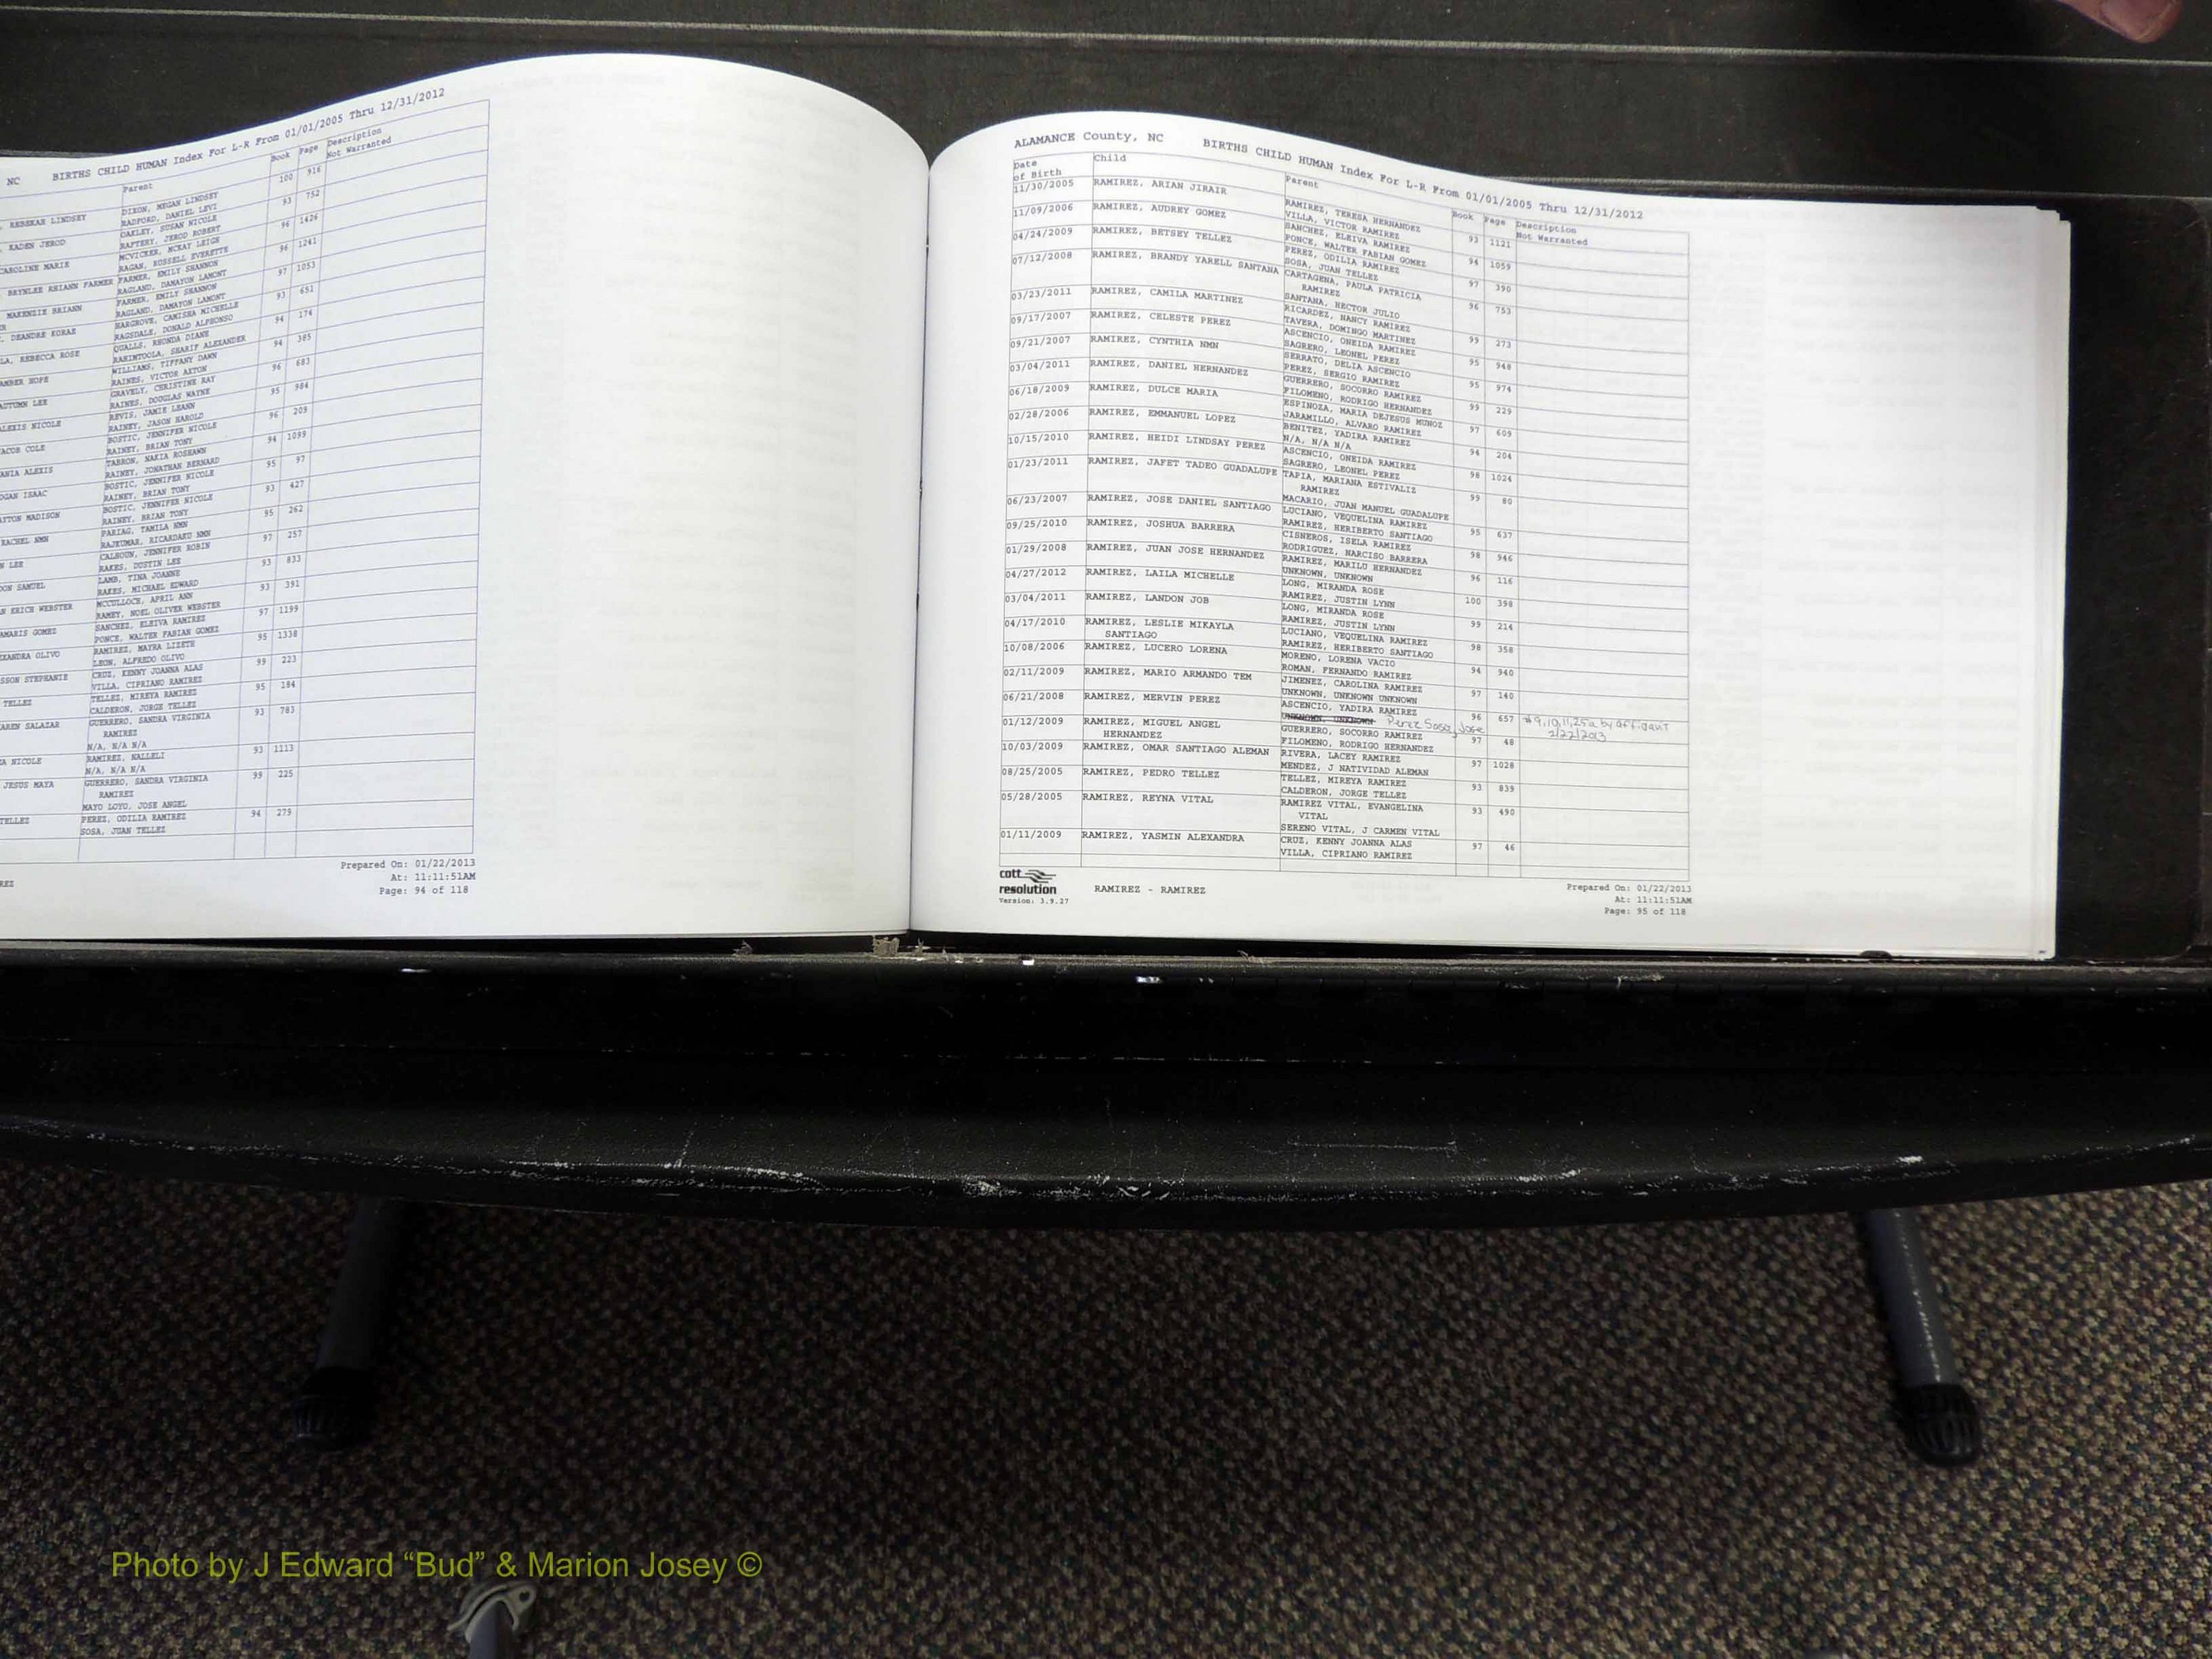 NC BIRTHS CHILD HUMAN Index For L-R From 01/01/2005 Thru 12/31/2012
Parent Book Page Description
Not Warranted
REBEKAH LINDSEY DIXON, MEGAN LINDSEY 100 916
RADFORD, DANIEL LEVI
KADEN JEROD OAKLEY, SUSAN NICOLE 93 752
RAFTERY, JEROD ROBERT
CAROLINE MARIE MCVICKER, MCKAY LEIGH 96 1426
RAGAN, RUSSELL EVERETTE
BRYNLEE RHIANN FARMER FARMER, EMILY SHANNON 96 1241
RAGLAND, DAMAYON LAMONT
MAKENZIE BRIANN FARMER, EMILY SHANNON 97 1053
RAGLAND, DAMAYON LAMONT
DEANDRE KORAE HARGROVE, CAMISHA MICHELLE 93 651
RAGSDALE, DONALD ALPHONSO
LA, REBECCA ROSE QUALLS, RHONDA DIANE 94 174
RAHIMTOOLA, SHARIF ALEXANDER
AMBER HOPE WILLIAMS, TIFFANY DAWN 94 385
RAINES, VICTOR AXTON
AUTUMN LEE GRAVELY, CHRISTINE RAY 96 683
RAINES, DOUGLAS WAYNE
ALEXIS NICOLE REVIS, JAMIE LEANN 95 984
RAINEY, JASON HAROLD
ACOB COLE BOSTIC, JENNIFER NICOLE 96 209
RAINEY, BRIAN TONY
ANIA ALEXIS TABRON, NAKIA ROSHAWN 94 1099
RAINEY, JONATHAN BERNARD
OGAN ISAAC BOSTIC, JENNIFER NICOLE 95 97
RAINEY, BRIAN TONY
AYTON MADISON BOSTIC, JENNIFER NICOLE 93 427
RAINEY, BRIAN TONY
RACHEL NMN PARIAG, TAMILA NMN 95 262
RAJKUMAR, RICARDARU NMN
N LEE CALHOUN, JENNIFER ROBIN 97 257
RAKES, DUSTIN LEE
DON SAMUEL LAMB, TINA JOANNE 93 833
RAKES, MICHAEL EDWARD
N ERICH WEBSTER MCCULLOCH, APRIL ANN 93 391
RAMEY, NOEL OLIVER WEBSTER
AMARIS GOMEZ SANCHEZ, ELEIVA RAMIREZ 97 1199
PONCE, WALTER FABIAN GOMEZ
EXANDRA OLIVO RAMIREZ, MAYRA LIZETH 95 1338
LEON, ALFREDO OLIVO
SSON STEPHANIE CRUZ, KENNY JOANNA ALAS 99 223
VILLA, CIPRIANO RAMIREZ
TELLEZ TELLEZ, MIREYA RAMIREZ 95 184
CALDERON, JORGE TELLEZ
AREN SALAZAR GUERRERO, SANDRA VIRGINIA 93 783
RAMIREZ
N/A, N/A N/A
A NICOLE RAMIREZ, NALLELI 93 1113
N/A, N/A N/A
JESUS MAYA GUERRERO, SANDRA VIRGINIA 99 225
RAMIREZ
MAYO LOYO, JOSE ANGEL
TELLEZ PEREZ, ODILIA RAMIREZ 94 279
SOSA, JUAN TELLEZ
Prepared On: 01/22/2013
At: 11:11:51AM
REZ Page: 94 of 118
ALAMANCE County, NC BIRTHS CHILD HUMAN Index For L-R From 01/01/2005 Thru 12/31/2012
Date of Birth Child Parent Book Page Description
Not Warranted
11/30/2005 RAMIREZ, ARIAN JIRAIR RAMIREZ, TERESA HERNANDEZ 93 1121
VILLA, VICTOR RAMIREZ
11/09/2006 RAMIREZ, AUDREY GOMEZ SANCHEZ, ELEIVA RAMIREZ 94 1059
PONCE, WALTER FABIAN GOMEZ
04/24/2009 RAMIREZ, BETSEY TELLEZ PEREZ, ODILIA RAMIREZ 97 390
SOSA, JUAN TELLEZ
07/12/2008 RAMIREZ, BRANDY YARELL SANTANA CARTAGENA, PAULA PATRICIA 96 753
RAMIREZ
SANTANA, HECTOR JULIO
03/23/2011 RAMIREZ, CAMILA MARTINEZ RICARDEZ, NANCY RAMIREZ 99 273
TAVERA, DOMINGO MARTINEZ
09/17/2007 RAMIREZ, CELESTE PEREZ ASCENCIO, ONEIDA RAMIREZ 95 948
SAGRERO, LEONEL PEREZ
09/21/2007 RAMIREZ, CYNTHIA NMN SERRATO, DELIA ASCENCIO 95 974
PEREZ, SERGIO RAMIREZ
03/04/2011 RAMIREZ, DANIEL HERNANDEZ GUERRERO, SOCORRO RAMIREZ 99 229
FILOMENO, RODRIGO HERNANDEZ
06/18/2009 RAMIREZ, DULCE MARIA ESPINOZA, MARIA DEJESUS MUNOZ 97 609
JARAMILLO, ALVARO RAMIREZ
02/28/2006 RAMIREZ, EMMANUEL LOPEZ BENITEZ, YADIRA RAMIREZ 94 204
N/A, N/A N/A
10/15/2010 RAMIREZ, HEIDI LINDSAY PEREZ ASCENCIO, ONEIDA RAMIREZ 98 1024
SAGRERO, LEONEL PEREZ
01/23/2011 RAMIREZ, JAFET TADEO GUADALUPE TAPIA, MARIANA ESTIVALIZ 99 80
RAMIREZ
MACARIO, JUAN MANUEL GUADALUPE
06/23/2007 RAMIREZ, JOSE DANIEL SANTIAGO LUCIANO, VEQUELINA RAMIREZ 95 637
RAMIREZ, HERIBERTO SANTIAGO
09/25/2010 RAMIREZ, JOSHUA BARRERA CISNEROS, ISELA RAMIREZ 98 946
RODRIGUEZ, NARCISO BARRERA
01/29/2008 RAMIREZ, JUAN JOSE HERNANDEZ RAMIREZ, MARILU HERNANDEZ 96 116
UNKNOWN, UNKNOWN
04/27/2012 RAMIREZ, LAILA MICHELLE LONG, MIRANDA ROSE 100 398
RAMIREZ, JUSTIN LYNN
03/04/2011 RAMIREZ, LANDON JOB LONG, MIRANDA ROSE 99 214
RAMIREZ, JUSTIN LYNN
04/17/2010 RAMIREZ, LESLIE MIKAYLA SANTIAGO LUCIANO, VEQUELINA RAMIREZ 98 358
RAMIREZ, HERIBERTO SANTIAGO
10/08/2006 RAMIREZ, LUCERO LORENA MORENO, LORENA VACIO 94 940
ROMAN, FERNANDO RAMIREZ
02/11/2009 RAMIREZ, MARIO ARMANDO TEM JIMENEZ, CAROLINA RAMIREZ 97 140
UNKNOWN, UNKNOWN UNKNOWN
06/21/2008 RAMIREZ, MERVIN PEREZ ASCENCIO, YADIRA RAMIREZ 96 657 #9,10,11,25a by affidavit
UNKNOWN, UNKNOWN Perez Sosa, Jose 2/22/2013
01/12/2009 RAMIREZ, MIGUEL ANGEL HERNANDEZ GUERRERO, SOCORRO RAMIREZ 97 48
FILOMENO, RODRIGO HERNANDEZ
10/03/2009 RAMIREZ, OMAR SANTIAGO ALEMAN RIVERA, LACEY RAMIREZ 97 1028
MENDEZ, J NATIVIDAD ALEMAN
08/25/2005 RAMIREZ, PEDRO TELLEZ TELLEZ, MIREYA RAMIREZ 93 839
CALDERON, JORGE TELLEZ
05/28/2005 RAMIREZ, REYNA VITAL RAMIREZ VITAL, EVANGELINA 93 490
VITAL
SERENO VITAL, J CARMEN VITAL
01/11/2009 RAMIREZ, YASMIN ALEXANDRA CRUZ, KENNY JOANNA ALAS 97 46
VILLA, CIPRIANO RAMIREZ
cott
resolution RAMIREZ - RAMIREZ
Version: 3.9.27
Prepared On: 01/22/2013
At: 11:11:51AM
Page: 95 of 118
Photo by J Edward “Bud” & Marion Josey ©